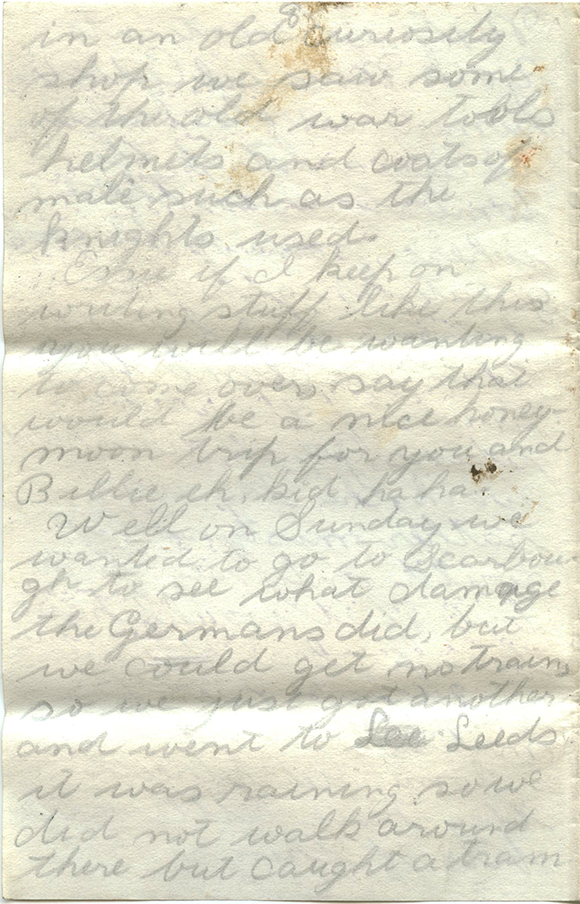 8
in an old curiosity
shop we saw some
of the old war tools
helmets and coats of
male such as the
knights used.
Essie if I keep on
writing stuff like this
you will be wanting
to come over, say that
would be a nice honey-
moon trip for you and
Billie eh. kid ha ha.
Well on Sunday we
wanted to go to Scarbou
gh to see what damage
the Germans did, but
we could get no trains
so we just got another
and went to Lee Leeds
it was raining so we
did not walk around
there but caught a tram